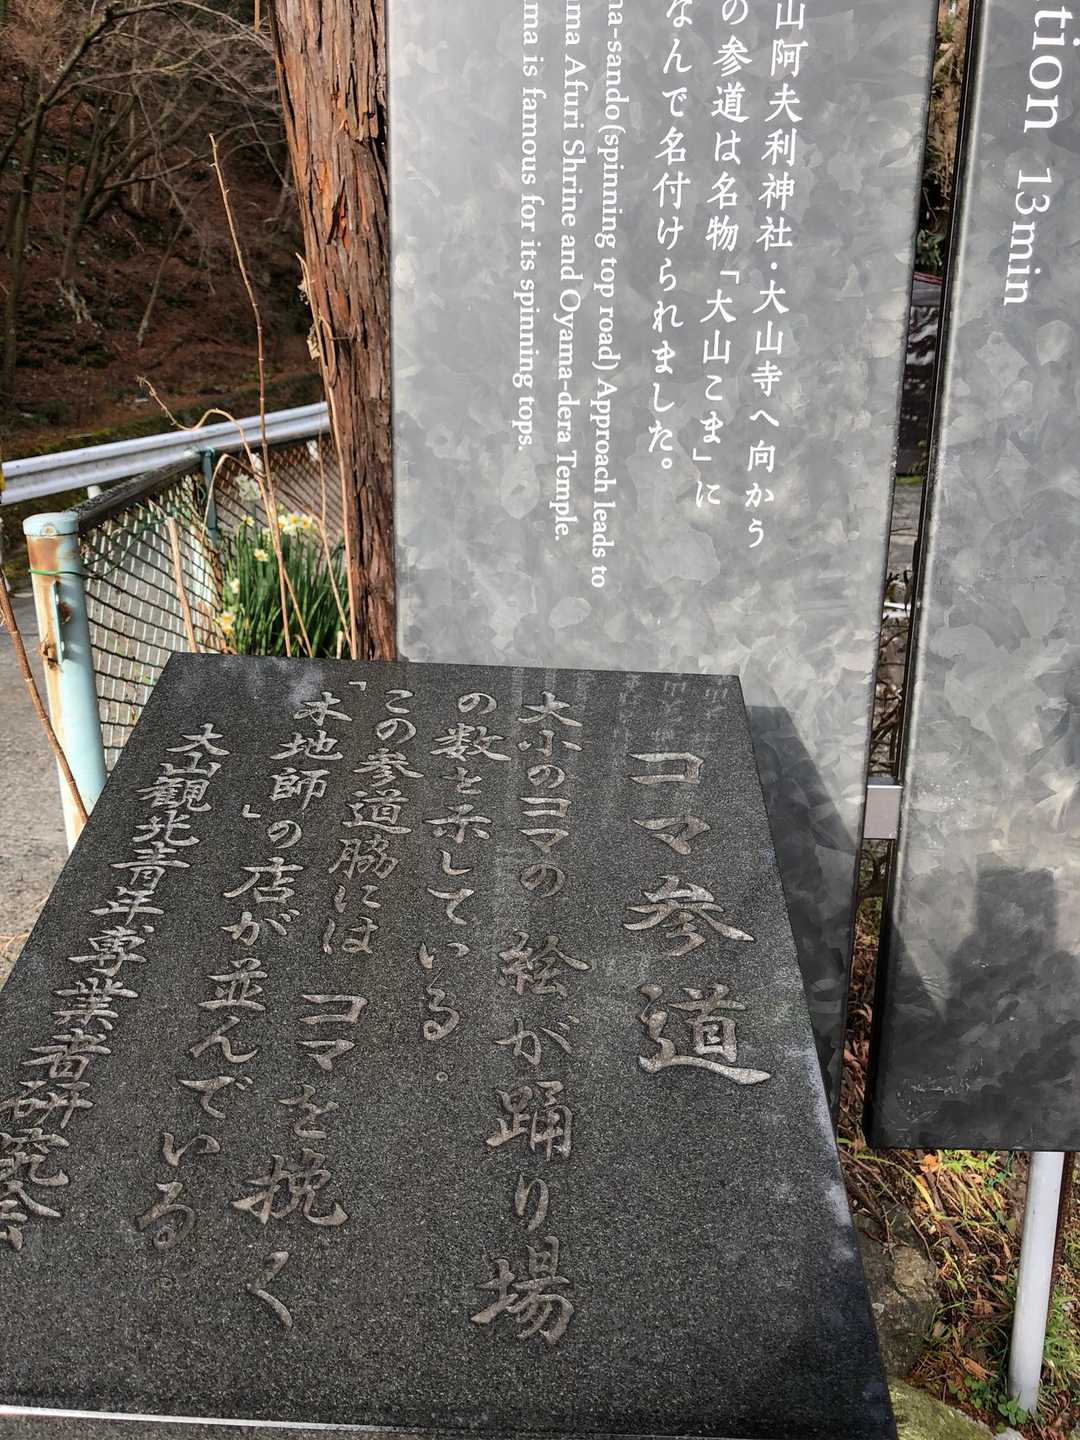 山阿夫利神社・大山寺へ向かう
の参道は名物「大山こま」に
なんで名付けられました。
ma-sando(spinning top road) Approach leads to
ma Afuri Shrine and Oyama-dera Temple.
ma is famous for its spinning tops.
tion 13min
コマ参道
大小のコマの絵が踊り場
の数を示している。
この参道脇にはコマを挽く
「木地師」の店が並んでいる
大山観光青年専業者研究会